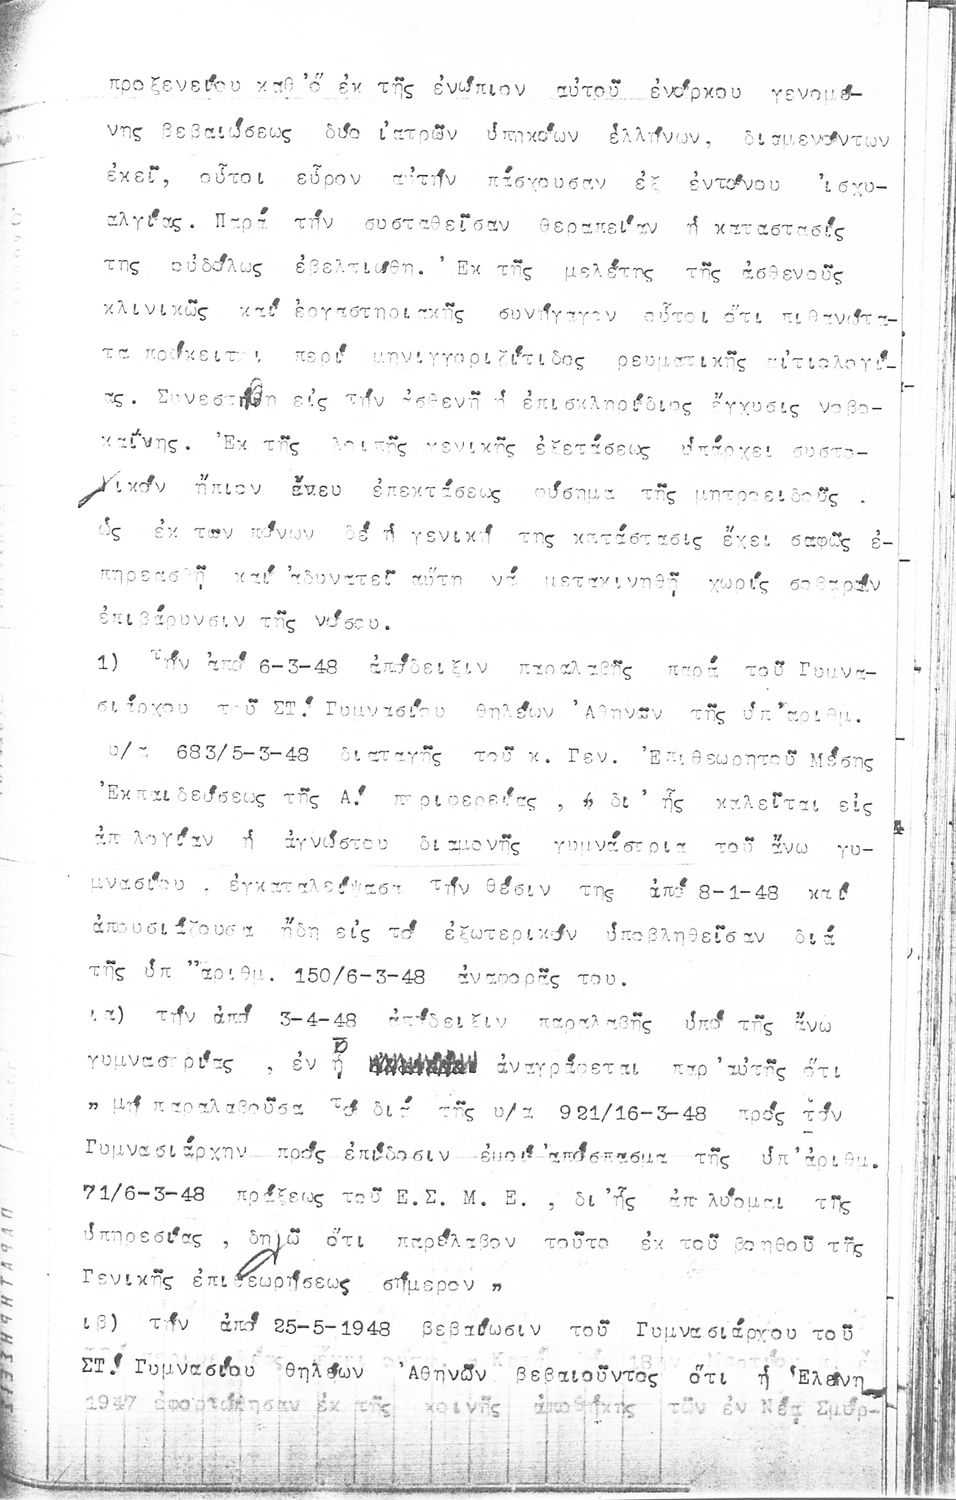 προξενείου καθ'ὅ ἐκ τῆς ἐνώπιον αὐτοῦ ἐνόρκου γενομέ-
νης βεβαιώσεως δύο ἰατρῶν ὑπηκόων ἑλλήνων, διαμενόντων
ἐκεῖ, οὗτοι εὗρον αὐτήν πάσχουσαν ἐξ ἐντόνου 'ισχυ-
αλγίας. Παρά τήν συσταθεῖσαν θεραπείαν ἡ κατάστασίς
της οὐδόλως ἐβελτιώθη. 'Εκ τῆς μελέτης τῆς ἀσθενοῦς
κλινικῶς καί ἐργαστηριακῆς συνήγαγον οὗτοι ὅτι πιθανώτα-
τα πρόκειται περί μηνιγγοριζίτιδος ρευματικῆς αἰτιολογί-
ας. Συνεστήθη εἰς τήν ἀσθενῆ ἡ ἐπισκληρίδιος ἔγχυσις νοβο-
καΐνης. 'Εκ τῆς λοιπῆς γενικῆς ἐξετάσεως ὑπάρχει συστο-
λικόν ἤπιον ἄνευ ἐπεκτάσεως φύσημα τῆς μητροειδοῦς .
ὡς ἐκ των πόνων δέ ἡ γενική της κατάστασις ἔχει σαφῶς ἐ-
πηρεασθῆ καί 'αδυνατεῖ αὕτη νά μετακινηθῇ χωρίς σοβαράν
ἐπιβάρυνσιν τῆς νόσου.
1) Τήν ἀπό 6-3-48 ἀπόδειξιν παραλαβῆς παρά τοῦ Γυμνα-
σιάρχου τοῦ ΣΤ! Γυμνασίου θηλέων 'Αθηνῶν τῆς ὑπ'αριθμ.
υ/α 683/5-3-48 διαταγῆς τοῦ κ. Γεν. 'Επιθεωρητοῦ Μέσης
'Εκπαιδεύσεως τῆς Α! περιφερείας , δι' ἧς καλεῖται εἰς
ἀπ λογίαν ἡ ἀγνώστου διαμονῆς γυμνάστρια τοῦ ἄνω γυ-
μνασίου . ἐγκαταλείψασα τήν θέσιν της ἀπό 8-1-48 καί
ἀπουσιάζουσα ἤδη εἰς τό ἐξωτερικόν ὑποβληθεῖσαν διά
τῆς ὑπ "αριθμ. 150/6-3-48 ἀναφορᾶς του.
ια) τήν ἀπό 3-4-48 ἀπόδειξιν παραλαβῆς ὑπό τῆς ἄνω
γυμναστρίας , ἐν ἡ ἀναγράφεται παρ'αὐτῆς ὅτι
„ μή παραλαβοῦσα τό διά τῆς υ/α 921/16-3-48 πρός τόν
Γυμνασιάρχην πρός ἐπίδοσιν ἐμοί ἀπόσπασμα τῆς ὑπ'άριθμ.
71/6-3-48 πράξεως τοῦ Ε.Σ. Μ. Ε. , δι'ἧς ἀπ λύομαι τῆς
ὑπηρεσίας , δηλῶ ὅτι παρέλαβον τοῦτο ἐκ τοῦ βοηθοῦ τῆς
Γενικῆς ἐπιθεωρήσεως σήμερον „
ιβ) τήν ἀπό 25-5-1948 βεβαίωσιν τοῦ Γυμνασιάρχου τοῦ
ΣΤ! Γυμνασίου θηλέων 'Αθηνῶν βεβαιοῦντος ὅτι ἡ 'Ελένη
1947 ἀφορτώθησαν ἐκ τῆς κοινῆς ἀποθήκης τῶν ἐν Νέᾳ Σμύρ-